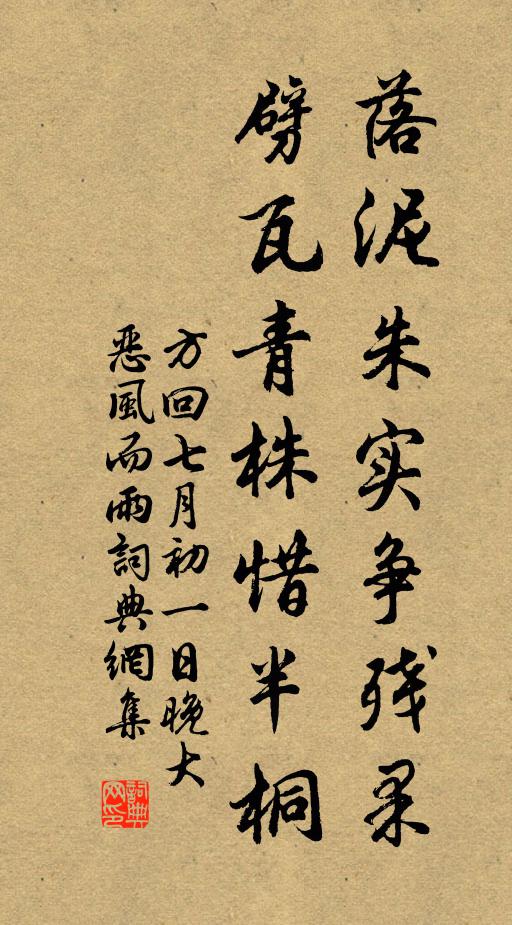 落泥朱实争残果
劈瓦青株惜半桐
方回七月初一日晚大
恶風而雨詞典網集
詞典
网印